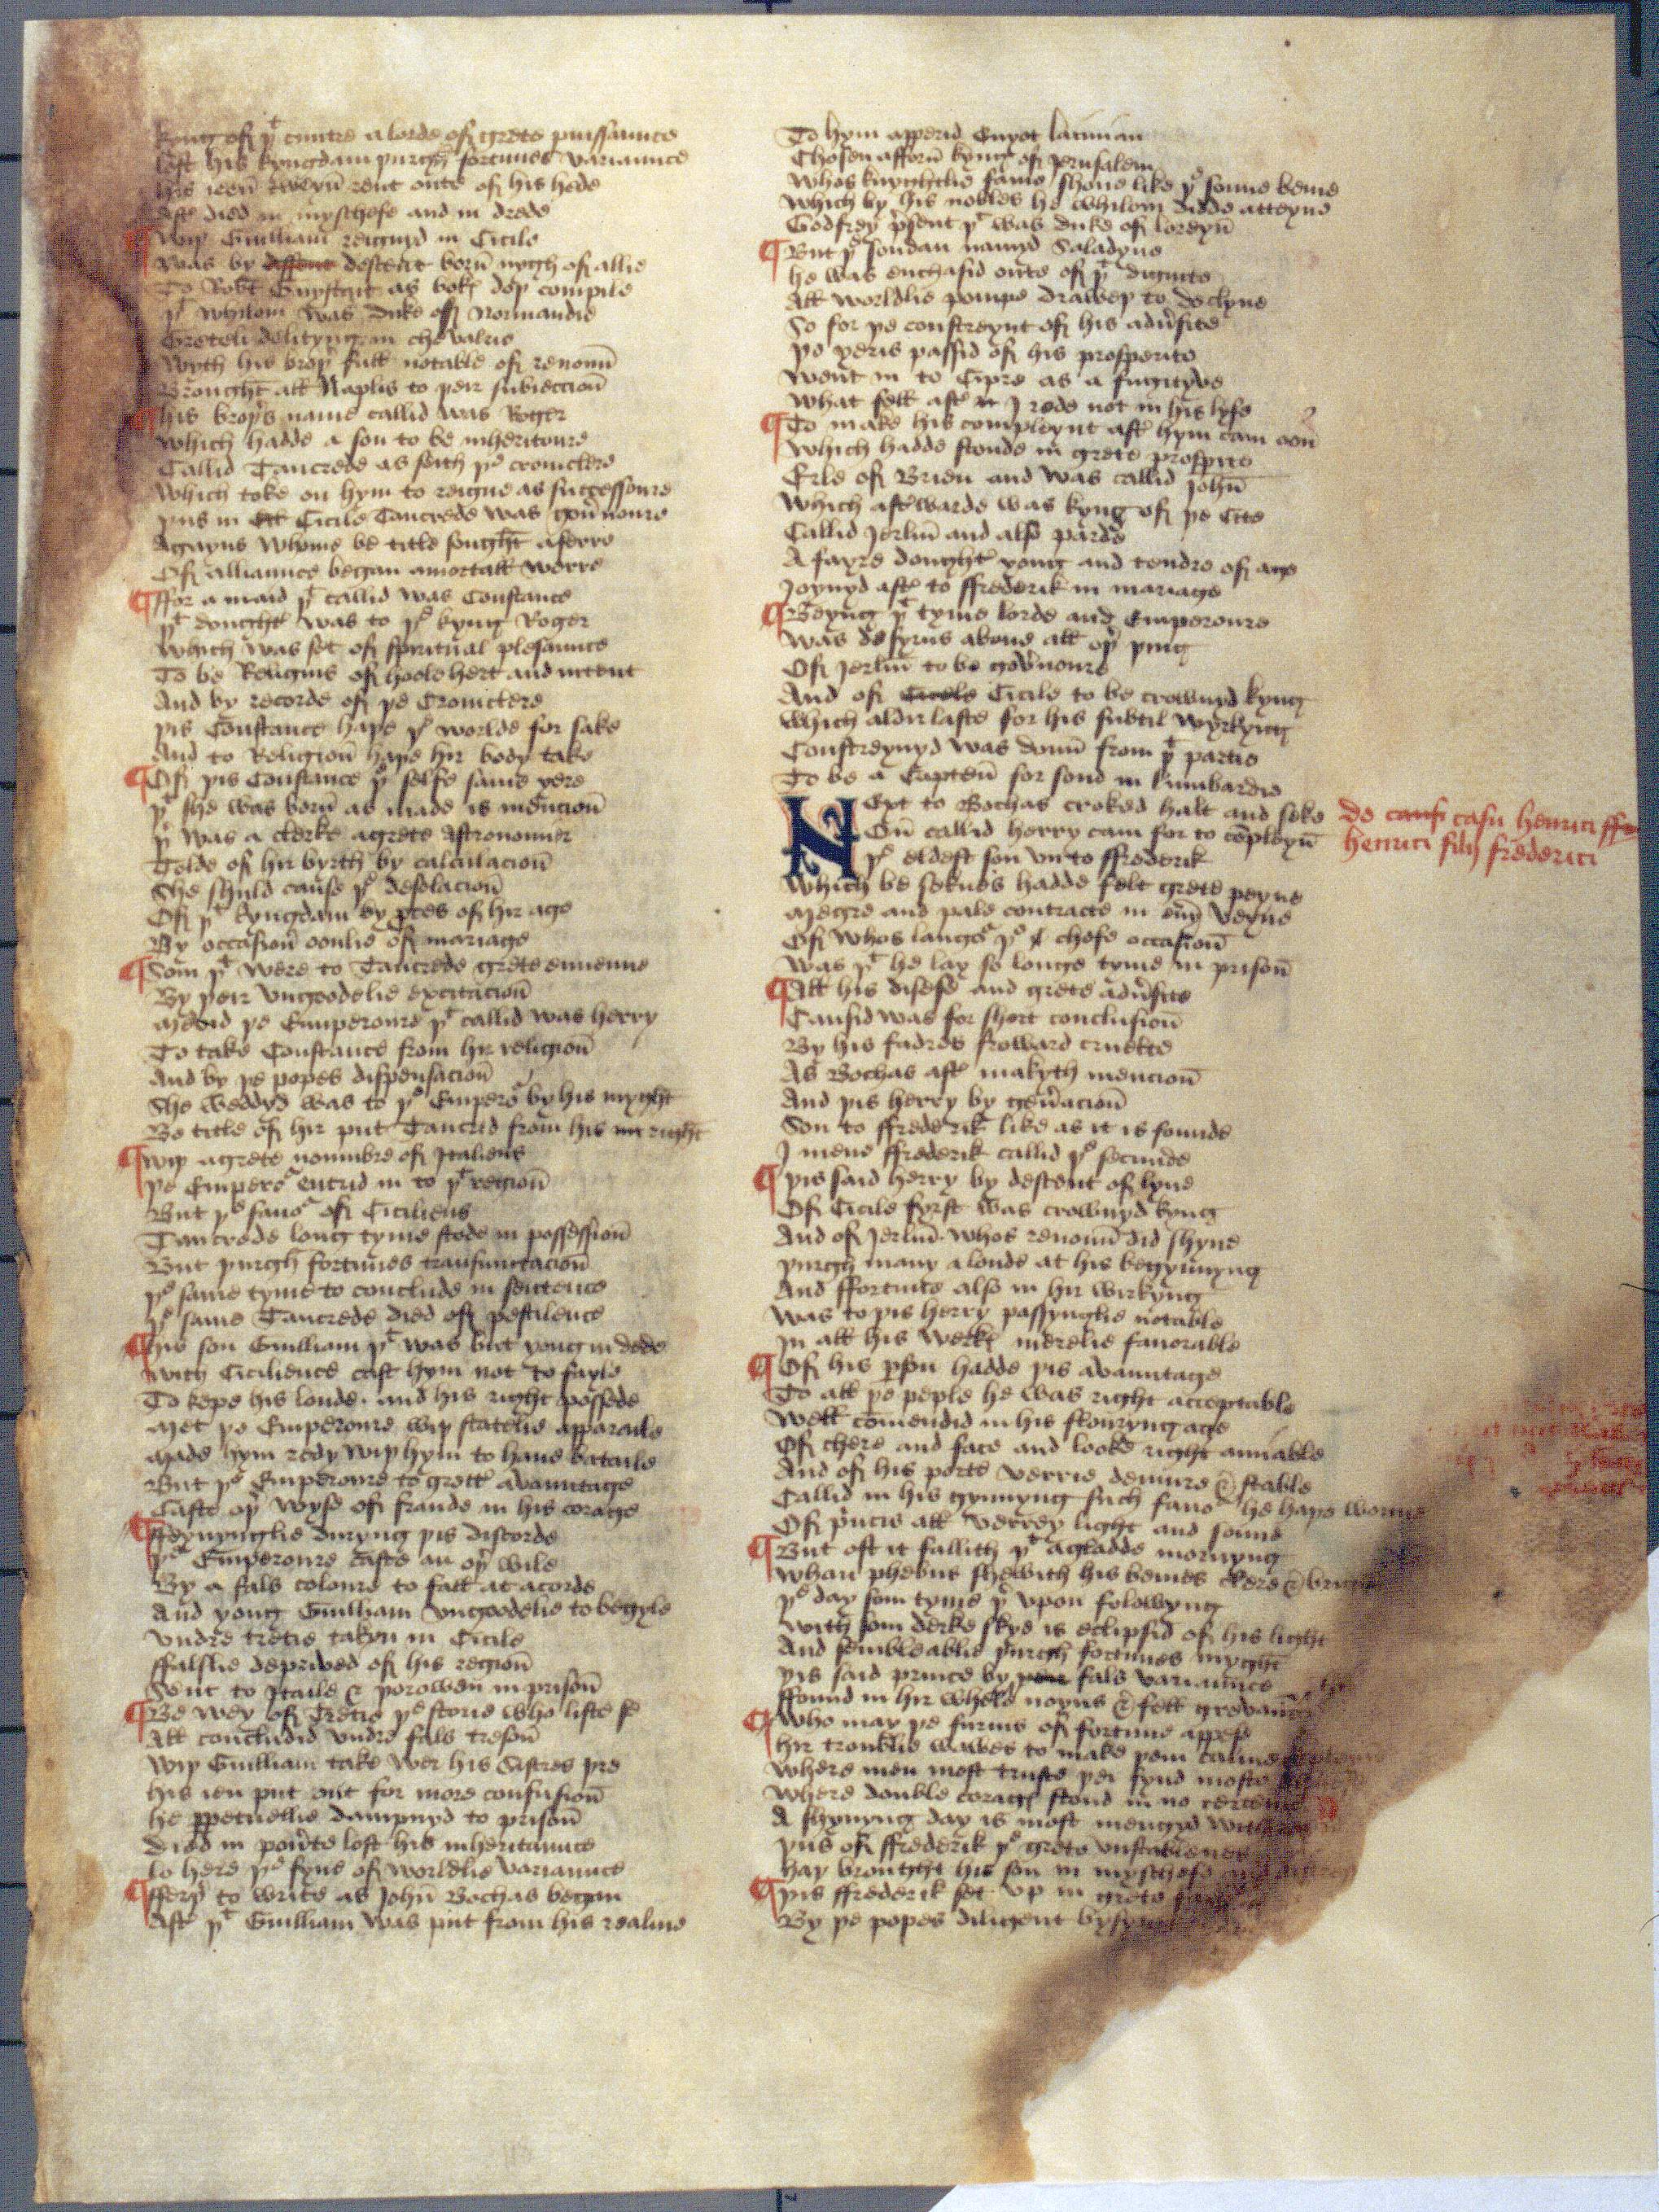 kyng of þt cuntre a lorde of grete puissaunce
lost his kyngdam þurgh fortunes variaunce
his ieen tweyn rent oute of his hede
Aftr died in myschefe and in drede
¶ Wiþ Guilliam reignyd in Cicile
Was by dissent descent born nygh of allie
To Robt Guyscart as bokes doþ compile
þt whilom was Duke of Normandie
Greteli delityng in chevalrie
Wyth his broþr full notable of renoun
Brought all Naplis to þeir subieccion
¶ his broþrs name callid was Roger
Which hadde a son to be inheritoure
Callid Tancrede as seith þe cronicler
Which toke on hym to reigne as successoure
þus in Cicile Tancrede was gouernoure
Agayns Whome be title sought aferre
Of alliaunce began a mortall werre
¶ ffor a maid þt callid was Constance
þt doughtr was to þe kyng Roger
Which was set of spiritual plesaunce
To be Religius of hoole hert and intent
And by recorde of þe Croniclere
þis Constance haþe þe worlde for sake
And to Religion haþe hir body take
¶ Of þis Constance þe selfe same yere
þt she was born as made is mencion
þr was a clerke a grete Astronomier
Tolde of hir byrth by calculacion
She shuld cause þe desolacion
Of þt kyngdam by proces of hir age
By occasion oonlie of mariage
¶ Som þt were to Tancrede grete ennemie
By þeir vngoodelie excitacion
Mevid þe Emperoure þt callid was herry
To take Constance from hir religion
And by þe popes dispensacion
She weddyd was to þe Emperor by his myght
Be title of hir put Tancrid from his right
¶ wiþ a grete noumbre of Italiens
þe Emperor entrid in to þt region
But þe favor of Ciciliens
Tancrede long tyme stode in possession
But þurgh fortunes transmutacion
þe same tyme to conclude in sentence
þe same Tancrede died of pestilence
¶ his son Guilliam þt was but yong in dede
with Cicilience cast hym not to fayle
To kepe his londe and his right possede
Met þe Emperoure wiþ statelie apparaile
Made hym redy wiþ hym to have bataile
But þe Emperoure to grett avauntage
Caste oþr wyse of fraude in his corage
¶ ffeynynglie duryng þis discorde
þe Emperoure caste an oþr wile
By a fals coloure to fall at acorde
And yong Guilliam vngoodelie to begyle
Vndre tretie takyn in Cicile
ffalslie deprived of his region
Sent to Itaile & þorowen in prison
¶ Be wey of Tretie þe storie who liste se
All concludid vndre fals treson
Wiþ Guilliam take wer his Sistres þre
his ien put out for more confusion
he perpetuellie dampnyd to prison
Died in pouerte lost his inheritaunce
lo here þe fyne of worldlie variaunce
¶ fferþr to write as John Bochas began
Aftr þt Guilliam was put from his realme
To hym apperid Guyot latinian
Chosen afforn kyng of Jerusalem
Whos knyghtlie fame shone like þe sonne beme
Which by his nobles he whilom didde atteyne
Godfrey present þt was duke of loreyn
¶ But þe Soudan namyd Saladyne
he was enchasid oute of þt dignite
All worldlie pompe draweþ to declyne
So for þe constreynt of his aduersite
þe yeris passid of his prosperite
Went in to Cipre as a fugityve
What fell aftr I rede not in his lyfe
¶ To make his compleynt aftr hym cam oon
Which hadde stonde in grete prosprite
Erle of Brien and was callid John
Which aftrwarde was kyng of þe Cite
Callid Jerlm and also parde
A fayre doughtr yong and tendre of age
Joynyd aftr to ffrederik in mariage
¶ Beyng þt tyme lorde and Emperoure
Was desyrus above all oþr þing
Of Jerlm to be governoure
And of Cicele Cicile to be crownyd kyng
Which aldirlaste for his subtil wyrkyng
Constreynyd was doun from þt partie
To be a Capteyn for sond in lumbardie
NExt to Bochas croked halt and seke
On callid herry cam for to compleyn
þe eldest son vnto ffrederik
Which be seknes hadde felt grete peyne
Megre and pale contracte in euery veyne
Of whos langor þe chefe occasion
Was þt he lay so longe tyme in prison
¶ All his disese and grete aduersite
Causid was for short conclusion
By his fadres froward cruelte
As Bochas aftr makyth mencion
And þis herry by generacion
Son to ffrederik like as it is founde
I mene ffrederik callid þe secunde
¶ þis said herry by descent of lyne
Of Cicile fyrst was crownyd kyng
And of Jerlm whos renoun did shyne
þurgh many a londe at his begynnyng
And ffortune also in hir wirkyng
Was to þis herry passynglie notable
In all his werkes merelie favorable
¶ Of his persone hadde þis avauntage
To all þe peple he was right acceptable
Well comendid in his flouryng age
Of chere and face and looke right amiable
And of his porte verrie demure & stable
Callid in his gynnyng such favor he haþe wonne
Of princis all verrey light and sonne
¶ But oft it fallith þt a gladde mornyng
Whan phebus shewith his bemes clere & bright
þe day som tyme þr vpon folowyng
With som derke skye is eclipsid of his light
And sembleablie þurgh fortunes myght
þis said prince by fals variaunce
ffound in hir whele noyus & fell grevaunce
¶ Who may þe furius of fortune appese
hir troublie wawes to make þem calme
Where men most truste þei fynd moste
Where double corage stond in no certeine
A shynyng day is most mengyd with
þus of ffrederik þe grete vnstablenes
haþ brought his son in myschefe and
¶ þis ffrederik set vp in grete
By þe popes diligent bysynes
De causi casu henrici ffre
henrici filij frederici